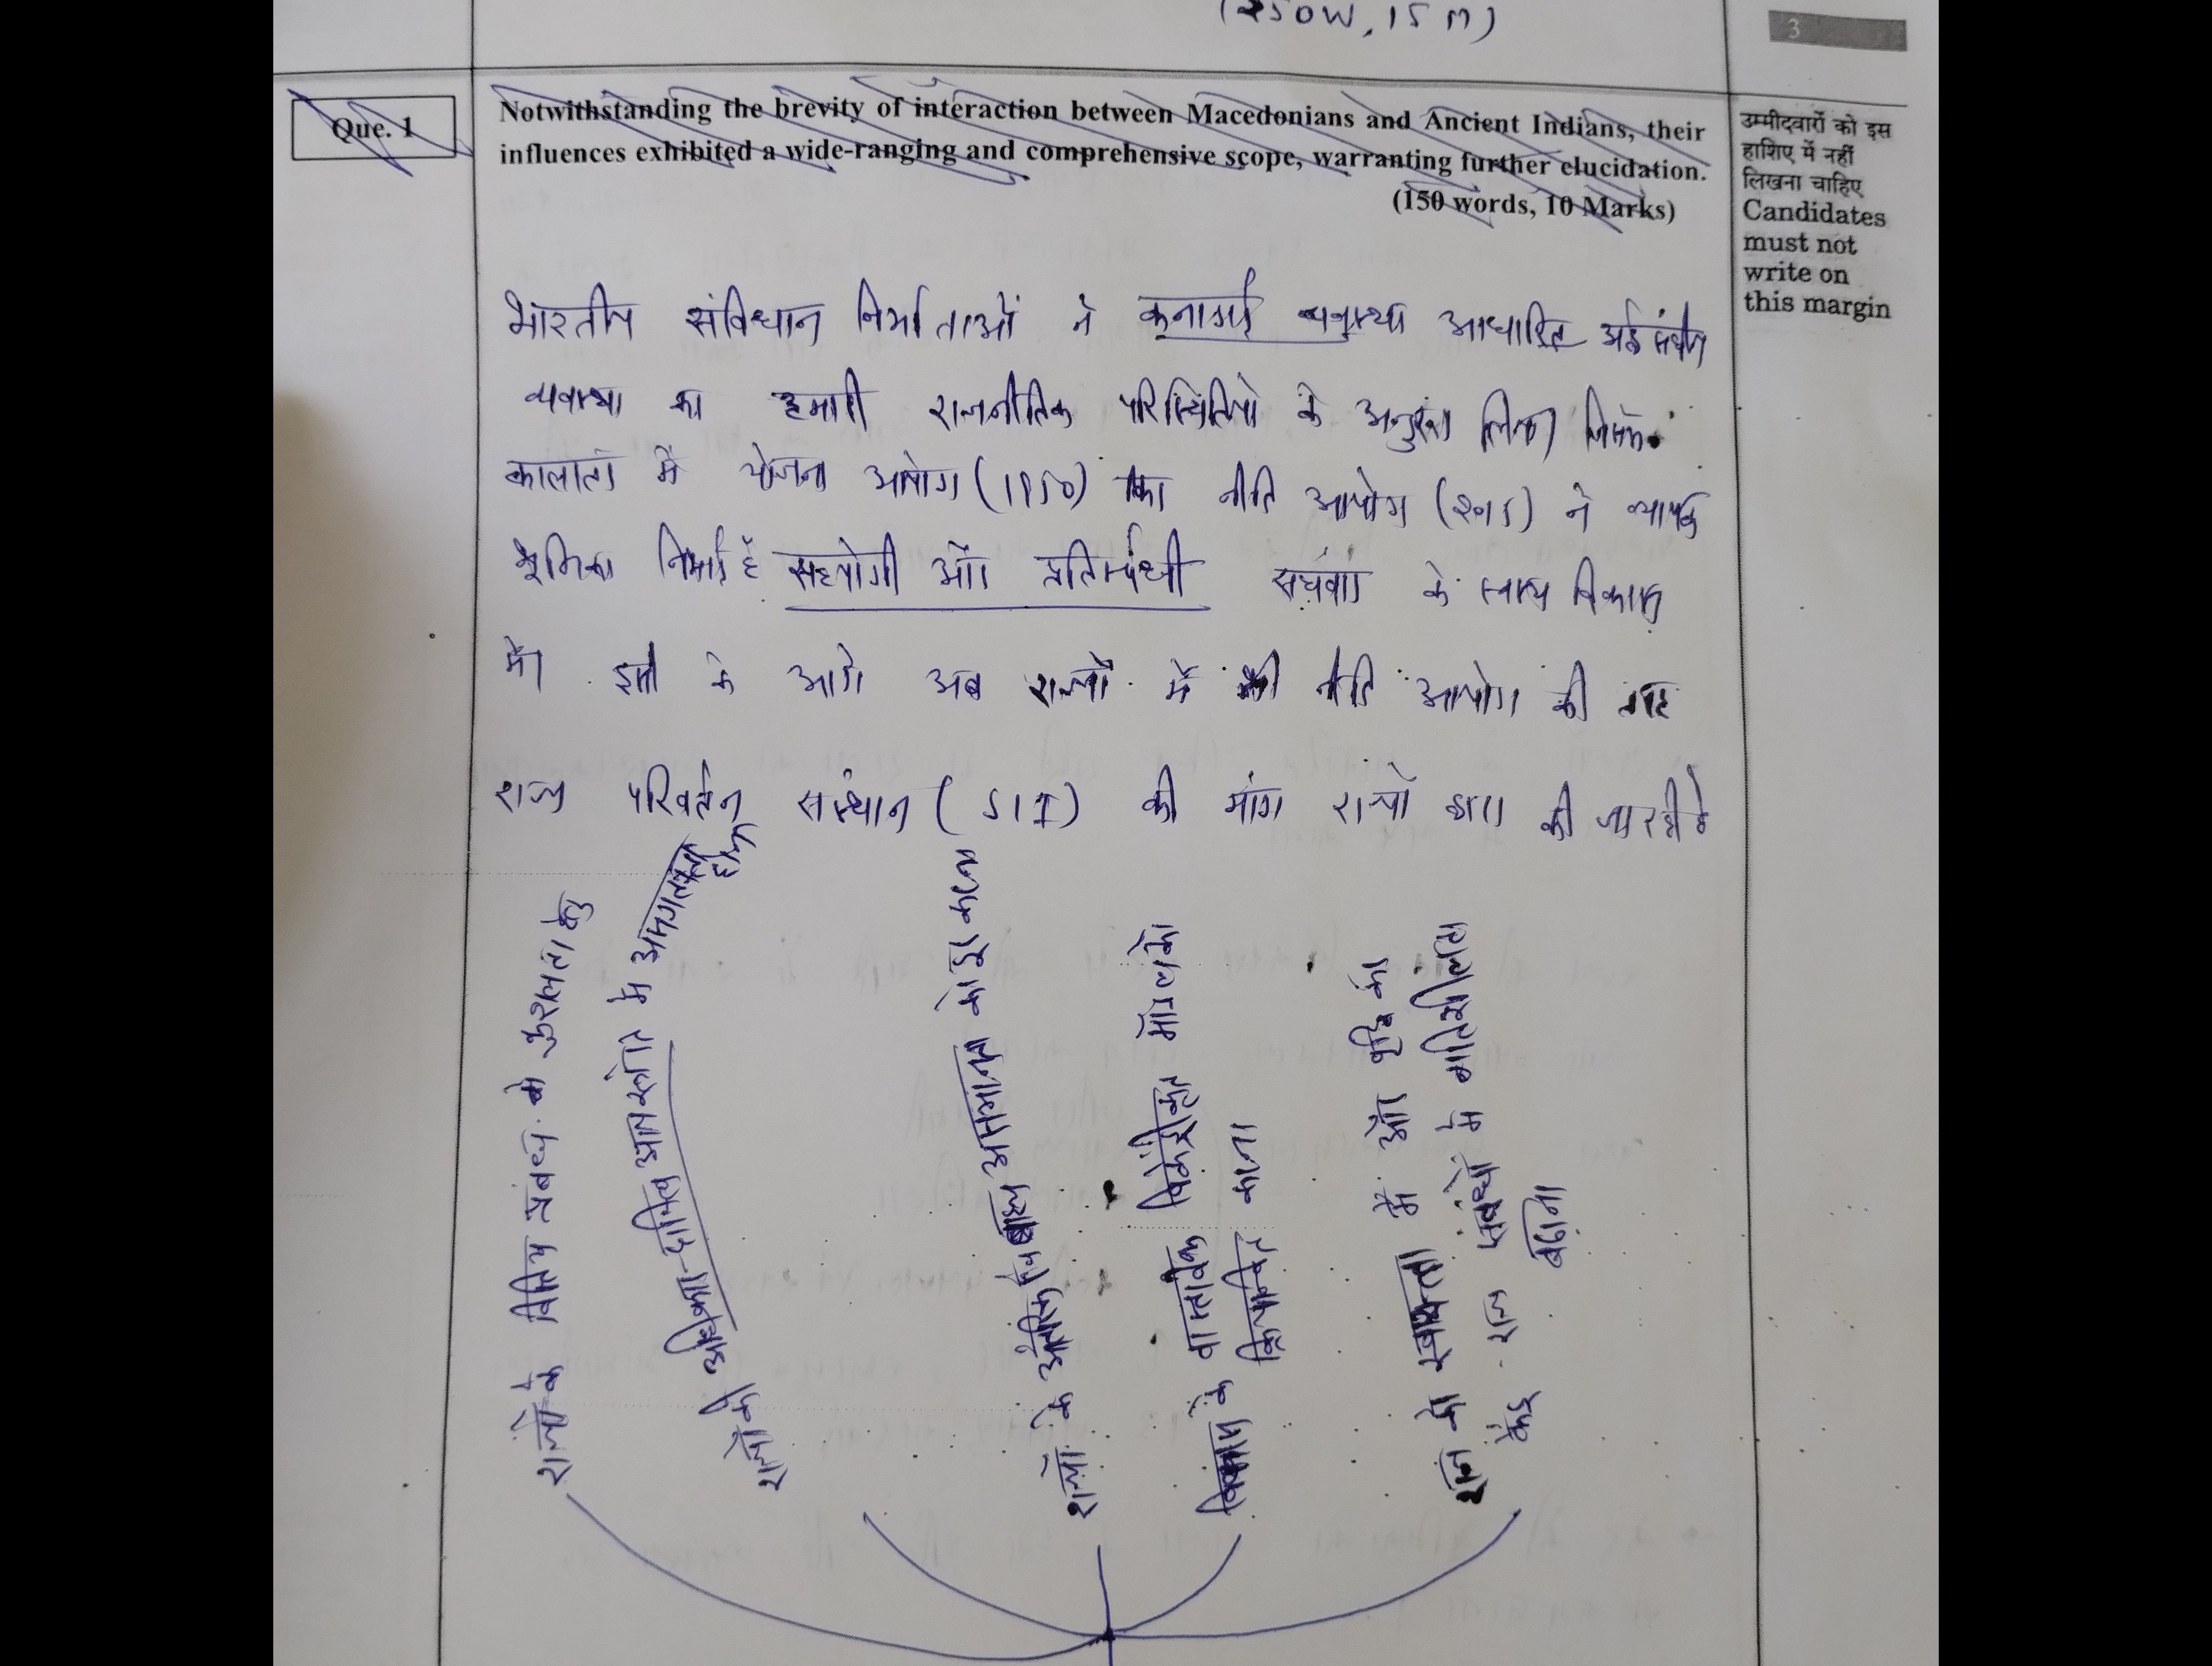 (250W, 15M)
3
Que. 1
Notwithstanding the brevity of interaction between Macedonians and Ancient Indians, their
influences exhibited a wide-ranging and comprehensive scope, warranting further elucidation.
(150 words, 10 Marks)
उम्मीदवारों को इस
हाशिए में नहीं
लिखना चाहिए
Candidates
must not
write on
this margin
भारतीय संविधान निर्माताओं ने व्यवस्था आधारित
व्यवस्था का हमारी राजनीतिक परिस्थितियो के अनुरूप लिया
कालांतर में योजना आयोग (1950) नीति आयोग (2015) ने व्यापक
भूमिका निभाई है सहयोगी और प्रतिस्पर्धी संघवाद के साथ विकास
में। इसी के आगे अब राज्यों में भी नीति आयोग की तरह
राज्य परिवर्तन संस्थान (SIT) की मांग राज्यो द्वारा की जा रही है
राज्यो के वित्तिय प्रबंधन कुशलता हेतु
राज्यो की आय स्त्रोत में असंगतता होना
राज्यो के आंतरिक असमानता को दूर करना
विकास के वास्तविक विकेंद्रीकृत मॉडल को
क्रियान्वित करना
राज्य की स्वायत्ता में और वृद्धि का
केंद्र राज्य संबंधो में गतिशीलता
बढ़ाना